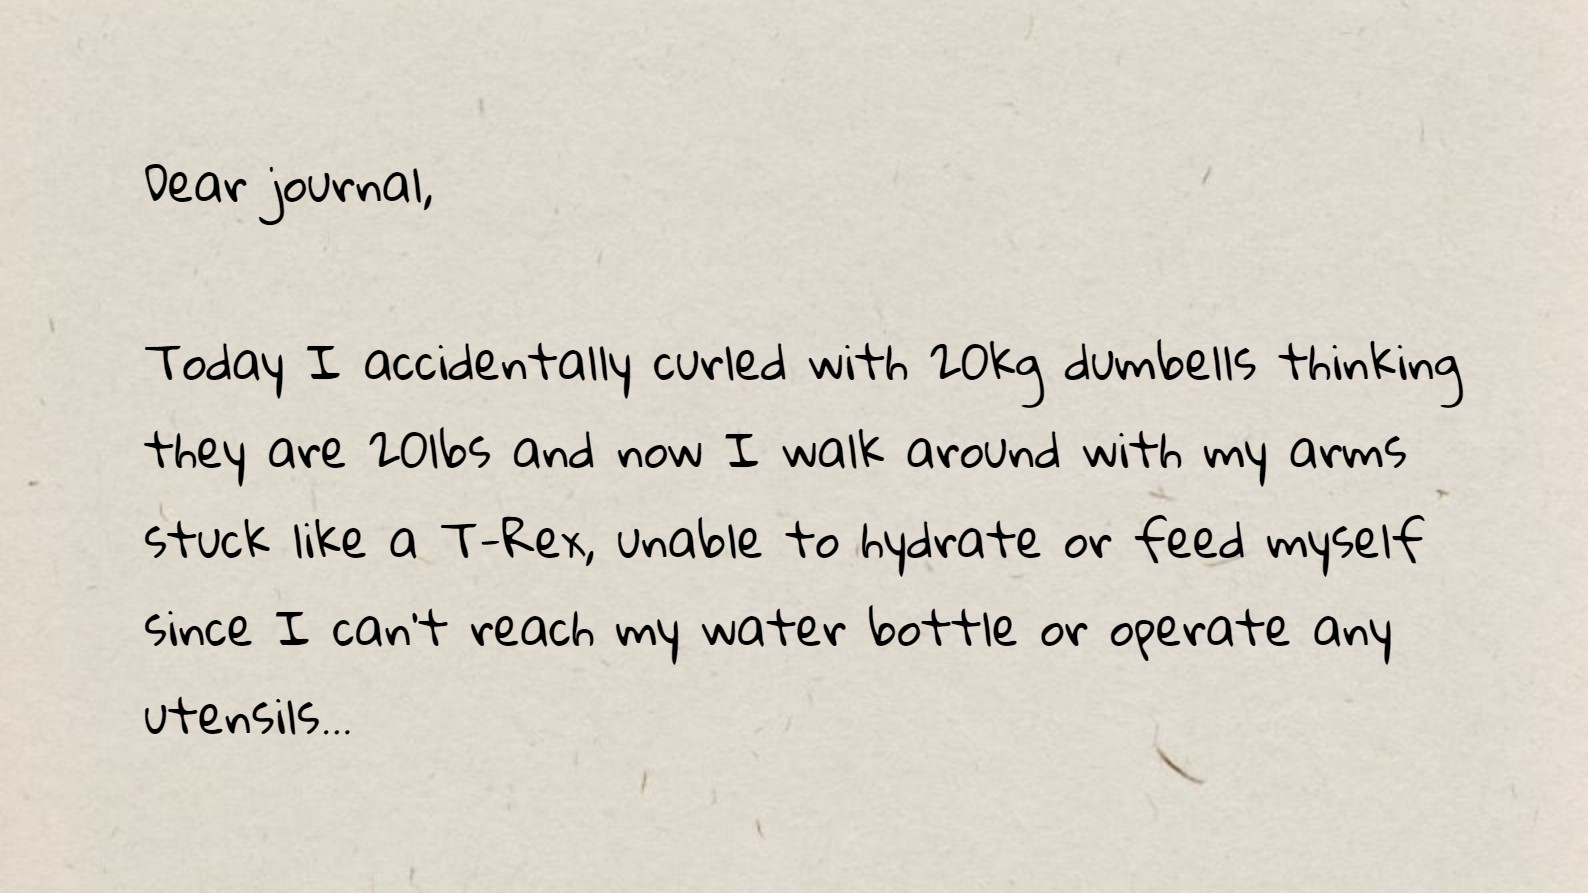 Dear journal,
Today I accidentally curled with 20kg dumbells thinking
they are 20lbs and now I walk around with my arms
stuck like a T-Rex, unable to hydrate or feed myself
since I can't reach my water bottle or operate any
utensils...